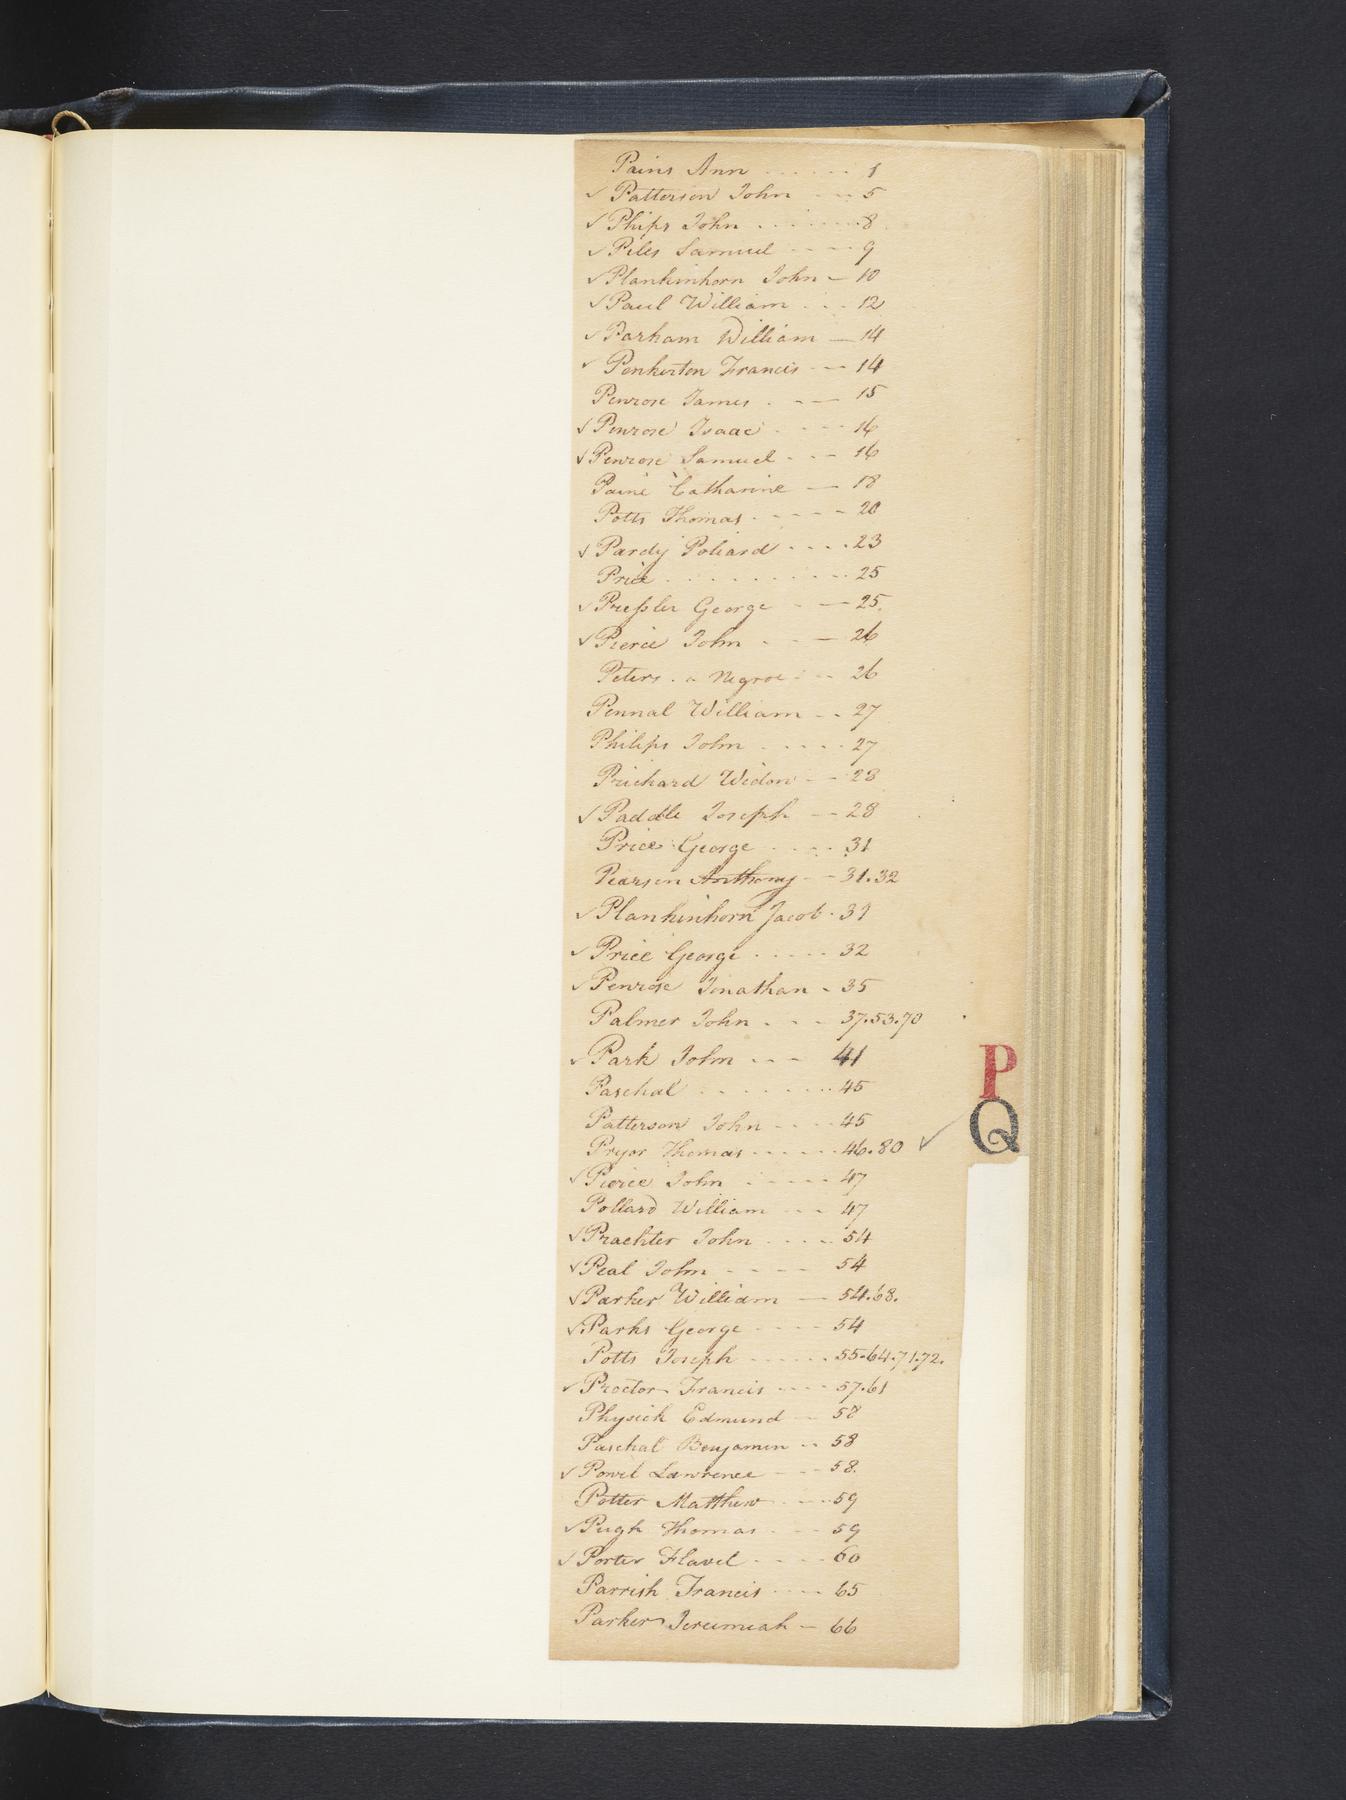 Pains Ann - - - - - - 1
✓ Patterson John - - - 5
✓ Phips John - - - - - - 8
✓ Piles Samuel - - - - 9
✓ Plankinhorn John - 10
✓ Paul William - - - 12
✓ Parham William — 14
✓ Penkerton Francis - - 14
Penrose James - - — 15
✓ Penrose Isaac - - - - 16
✓ Penrose Samuel - - - 16
Paine Catharine — 18
Potts Thomas - - - - - 20
✓ Pardy Poliard - - - - 23
Price - - - - - - - - - 25
✓ Pressler George - — 25.
✓ Pierce John - - — 26
Peters - a Negroe - - - 26
Pennal William - - 27
Philips John - - - - - 27
Prichard Widow - - 28
✓ Paddle Joseph - - 28
Price George - - - - 31
Pearson Anthony - - 31.32
✓ Plankinhorn Jacob - 31
✓ Price George - - - - - 32
✓ Penrose Jonathan - 35
Palmer John - - - 37.53.70
✓ Park John - - - 41
Paschal - - - - - - - - 45
Patterson John - - - - 45
Pryor Thomas - - - - - - 46.80 ✓
✓ Pierce John - - - - - 47
Pollard William - - - 47
✓ Prachter John - - - - - 54
✓ Peal John - - - - 54
✓ Parker William — 54.68.
✓ Parks George - - - - 54
Potts Joseph - - - - - - 55.64.71.72.
✓ Proctor Francis - - - - 57.61
Physick Edmund - - 58
Paschal Benjamin - - 58
✓ Powel Lawrence - - - - 58.
Potter Matthew - - - - 59
✓ Pugh Thomas - - - 59
✓ Porter Flavel - - - - 60
Parrish Francis - - - - 65
Parker Jeremiah — 66
P
Q